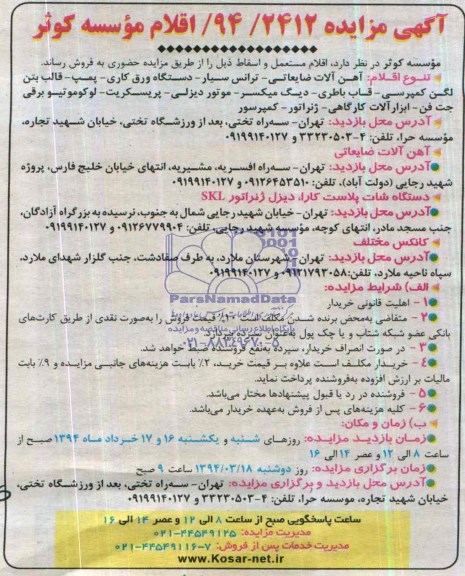 آگهی مزایده ۲۴۱۲/ ۹۴/ اقلام مؤسسه کوثر
مؤسسه کوثر در نظر دارد، اقلام مستعمل و اسقاط ذیل را از طریق مزایده حضوری به فروش رساند.
تنوع اقلام: آهن آلات ضایعاتی- ترانس سیار- دستگاه ورق کاری- پمپ- قالب بتن
لگن کمپرسی- قاب باطری- دیگ میکسر- موتور دیزلی- پریسکریت- لوکوموتیو برقی
جت فن- ابزارآلات کارگاهی- ژنراتور- کمپرسور
آدرس محل بازدید: تهران- سه‌راه تختی، بعد از ورزشگاه تختی، خیابان شهید تجاره،
مؤسسه حرا، تلفن: ۴-۳۳۲۳۰۵۰۳ و ۰۹۱۹۹۱۴۰۱۲۷
آهن آلات ضایعاتی
آدرس محل بازدید: تهران- سه‌راه افسریه، مشیریه، انتهای خیابان خلیج فارس، پروژه
شهید رجایی (دولت آباد)، تلفن: ۰۹۱۲۶۴۵۳۵۱۰ و ۰۹۱۹۹۱۴۰۱۲۷
دستگاه شات پلاست کارا، دیزل ژنراتور SKL
آدرس محل بازدید: تهران- خیابان شهید رجایی شمال به جنوب، نرسیده به بزرگراه آزادگان،
جنب مسجد مادر، انتهای کوچه، مؤسسه شهید رجایی، تلفن: ۰۹۱۲۶۷۷۹۹۰۴ و ۰۹۱۹۹۱۴۰۱۲۷
کانکس مختلف
آدرس محل بازدید: تهران- شهرستان ملارد، به طرف صفادشت، جنب گلزار شهدای ملارد،
سپاه ناحیه ملارد، تلفن: ۰۹۱۲۱۷۹۳۰۵۸ و ۰۹۱۹۹۱۴۰۱۲۷
الف) شرایط مزایده:
۱- اهلیت قانونی خریدار
۲- متقاضی به‌محض برنده شدن مکلف است ۱۰٪ قیمت فروش را به‌صورت نقدی از طریق کارت‌های
بانکی عضو شبکه شتاب و یا چک پول به‌عنوان سپرده بپردازد.
۳- در صورت انصراف خریدار، سپرده به‌نفع فروشنده ضبط خواهد شد.
۴- خریدار مکلف است علاوه بر قیمت خرید، ۲٪ بابت هزینه‌های جانبی مزایده و ۹٪ بابت
مالیات بر ارزش افزوده به‌فروشنده پرداخت نماید.
۵- فروشنده در رد یا قبول پیشنهادها مختار می‌باشد.
۶- کلیه هزینه‌های پس از فروش به‌عهده خریدار می‌باشد.
ب) زمان و مکان:
زمان بازدید مزایده: روزهای شنبه و یکشنبه ۱۶ و ۱۷ خرداد ماه ۱۳۹۴ صبح از
ساعت ۸ الی ۱۲ و عصر ۱۴ الی ۱۶
زمان برگزاری مزایده: روز دوشنبه ۱۳۹۴/۰۳/۱۸ ساعت ۹ صبح
آدرس محل بازدید و برگزاری مزایده: تهران- سه‌راه تختی، بعد از ورزشگاه تختی،
خیابان شهید تجاره، موسسه حرا، تلفن: ۴-۳۳۲۳۰۵۰۳ و ۰۹۱۹۹۱۴۰۱۲۷
ساعت پاسخگویی صبح از ساعت ۸ الی ۱۲ و عصر ۱۴ الی ۱۶
مدیریت مزایده: ۴۴۵۴۹۱۲۵-۰۲۱
مدیریت خدمات پس از فروش: ۷-۴۴۵۴۹۱۱۶-۰۲۱
www.Kosar-net.ir
ParsNamadData
پایگاه اطلاع رسانی مناقصه و مزایده
۰۲۱-۸۸۳۴۹۶۷۰-۵